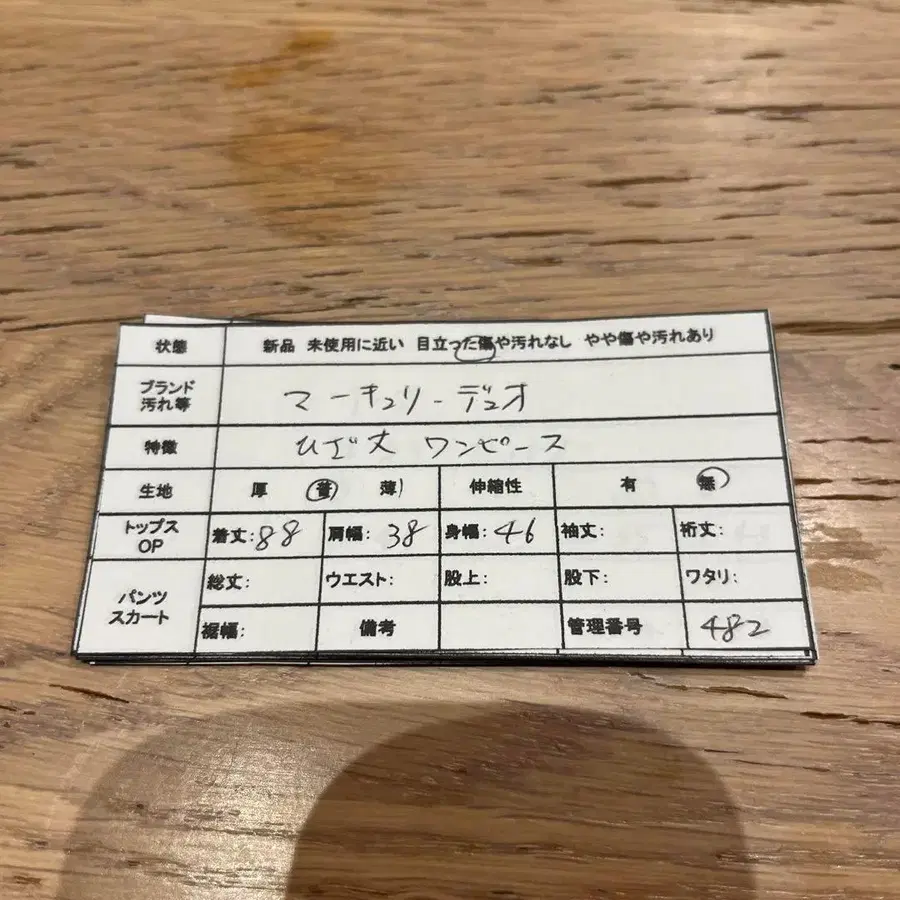 状態 新品 未使用に近い 目立った傷や汚れなし やや傷や汚れあり
ブランド
汚れ等
マーキュリーデュオ
特徴 ひざ丈 ワンピース
生地 厚 普 薄 伸縮性 有 無
トップス
OP
着丈:88 肩幅:38 身幅:46 袖丈: 裄丈:
パンツ
スカート
総丈: ウエスト: 股上: 股下: ワタリ:
裾幅: 備考 管理番号 482